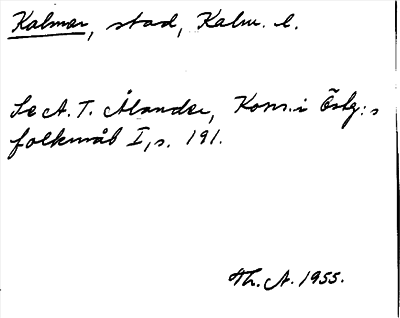 Kalmar, stad, Kalm. l.
Se A. T. Ålander, Kons. i Östg:s
folkmål I, s. 191.
Th. A. 1955.